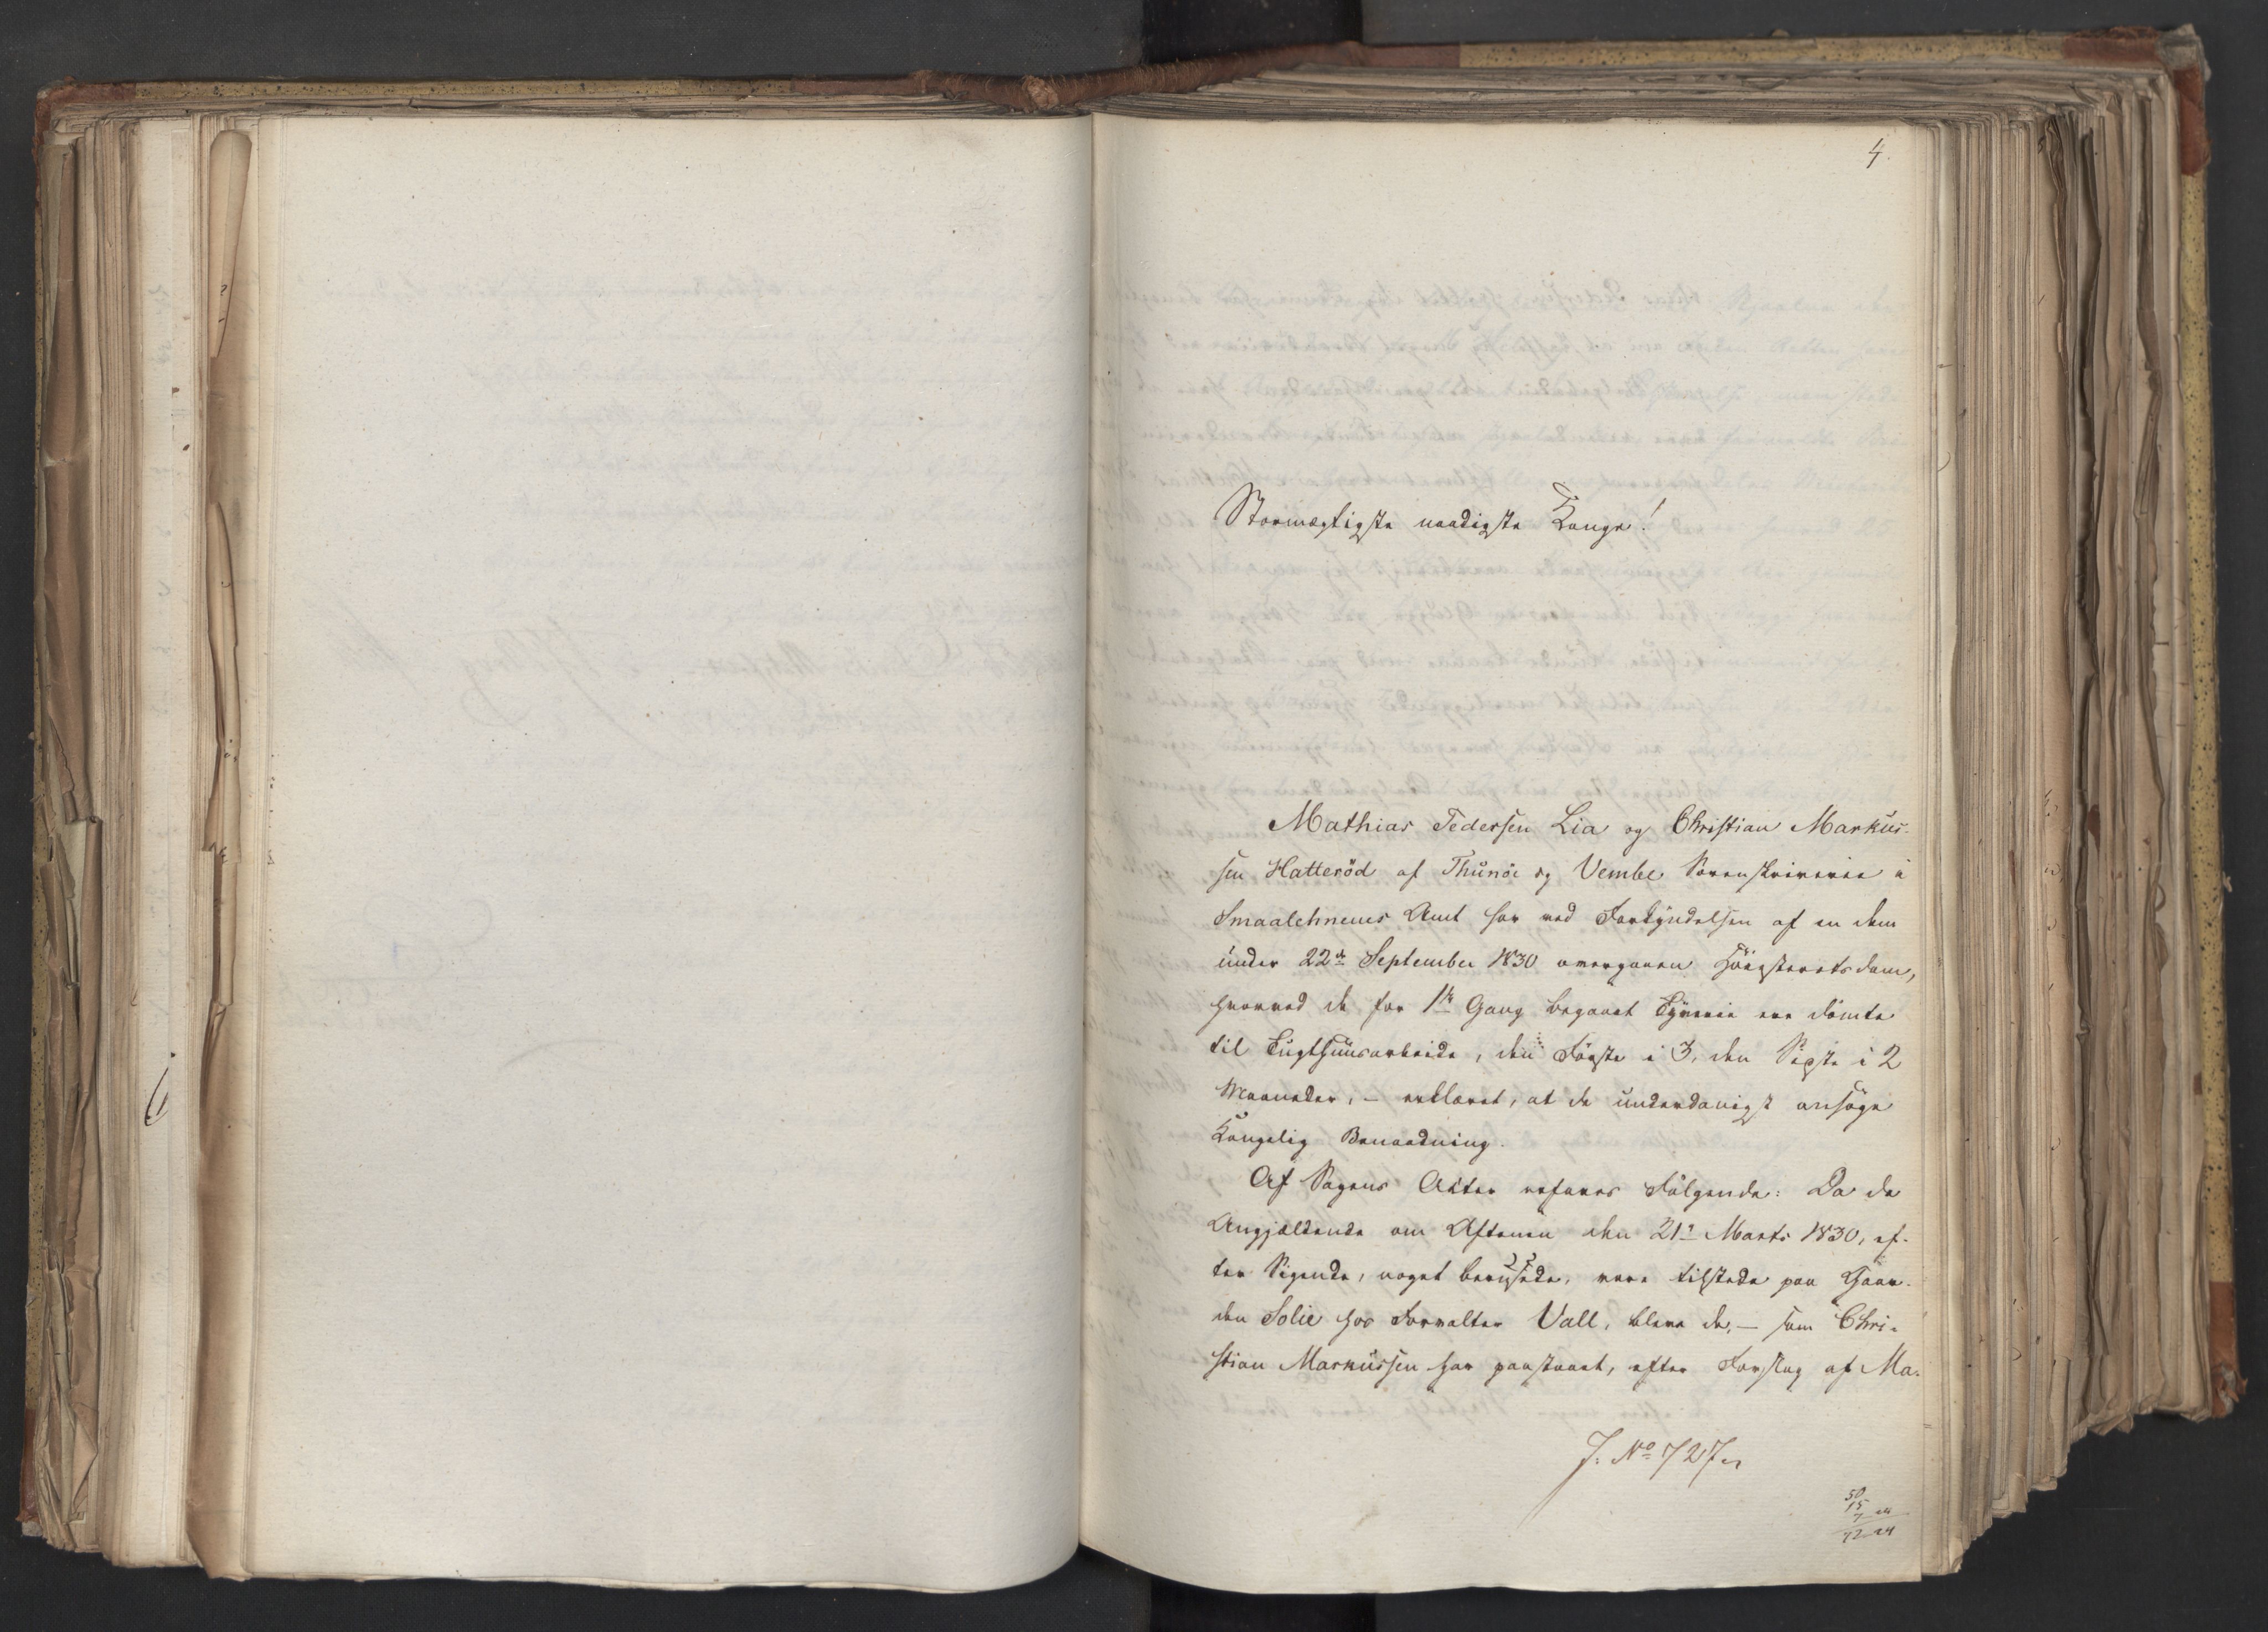 4.
Stormægtigste naadigste Konge!
Mathias Pedersen Lia og Christian Markus-
sen Hatteröd af Thunöe og Vembe Sorenskriverie i
Smaalehnenes Amt har ved Forkyndelsen af en dem
under 22de September 1830 overgaaen Höiesteretsdom,
hvorved de for 1ste Gang begaaet Tyverie ere dömte
til Tugthuusarbeide, den Förste i 3, den Sidste i 2
Maaneder, – erklæret, at de underdanigst ansöge
Kongelig Benaadning.
Af Sagens Akter erfares Fölgende: Da de
Angjældende om Aftenen den 21de Marts 1830, ef-
ter Sigende, noget berusede, vare tilstede paa Gaar-
den Solie hos Forvalter Vall, bleve de, – som Chri-
stian Markussen har paastaaet, efter Forslag af Ma-
J. No 727
50
15
7 24
72 24